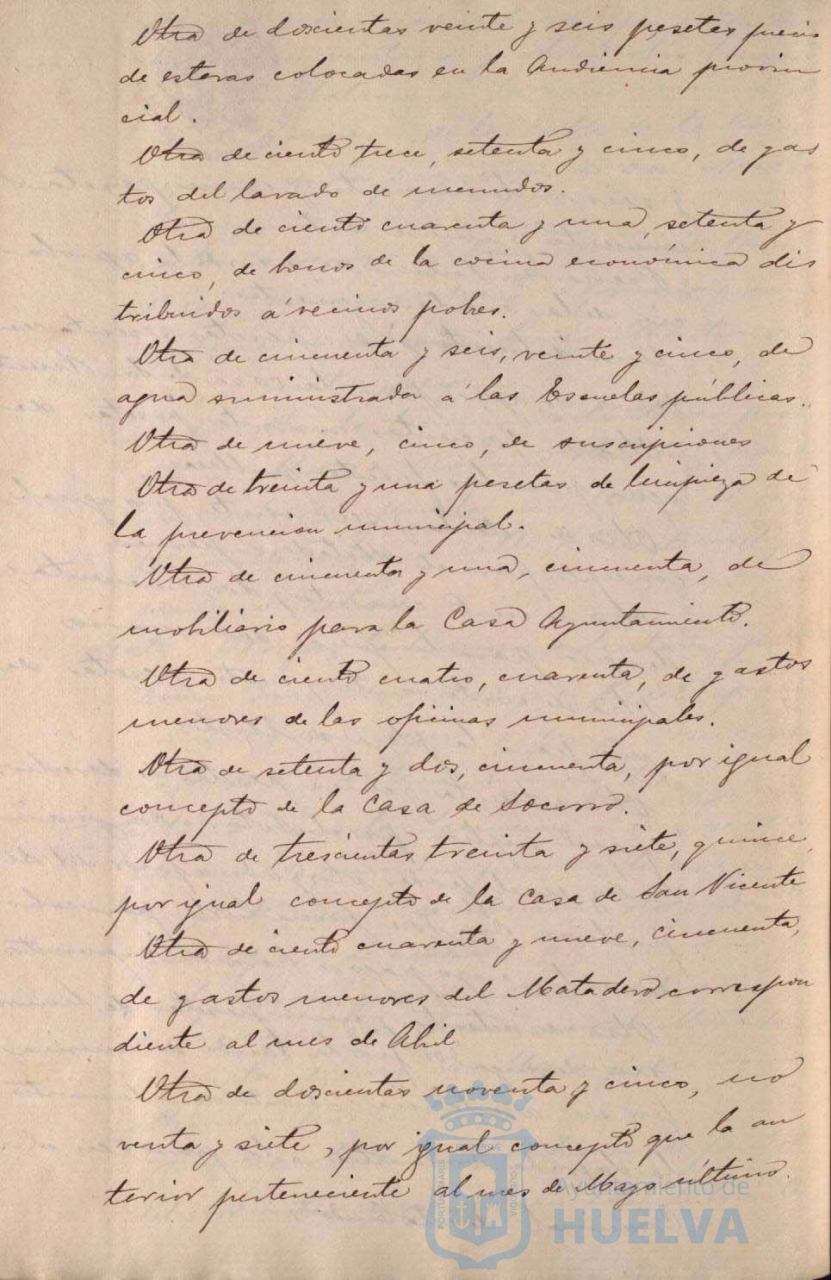 Otra de doscientas veinte y seis pesetas precio
de esteras colocadas en la Audiencia provin
cial.
Otra de ciento trece, setenta y cinco, de gas
tos del lavado de menudos.
Otra de ciento cuarenta y una, setenta y
cinco, de bonos de la cocina económica dis
tribuidos á vecinos pobres.
Otra de cincuenta y seis, veinte y cinco, de
agua suministrada á las Escuelas públicas.
Otra de nueve, cinco, de suscripciones
Otra de treinta y una pesetas de limpieza de
la prevencion municipal.
Otra de cincuenta y una, cincuenta, de
mobiliario para la Casa Ayuntamiento.
Otra de ciento cuatro, cuarenta, de gastos
menores de las oficinas municipales.
Otra de setenta y dos, cincuenta, por igual
concepto de la Casa de Socorro.
Otra de trescientas treinta y siete, quince,
por igual concepto de la Casa de San Vicente
Otra de ciento cuarenta y nueve, cincuenta,
de gastos menores del Matadero correspon
diente al mes de Abril
Otra de doscientas noventa y cinco, no
venta y siete, por igual concepto que la an
terior perteneciente al mes de Mayo último.
Ayuntamiento de
HUELVA